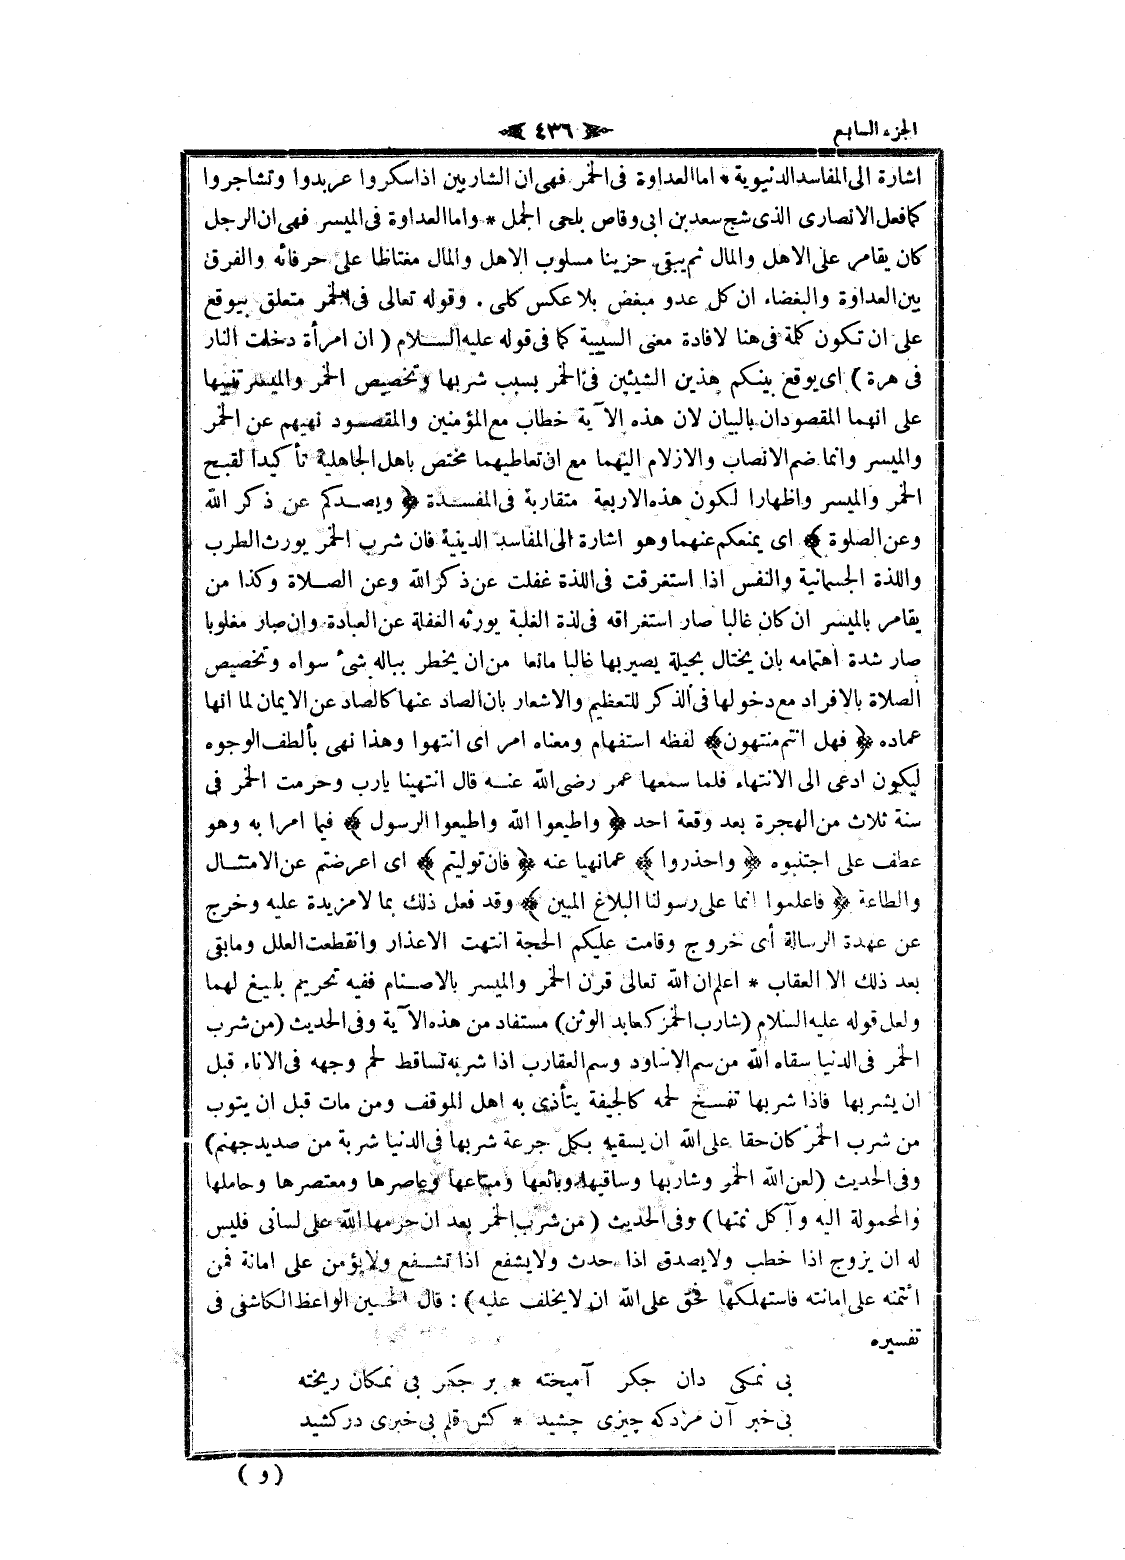 الجزء السابع
﴿ ٤٣٦ ﴾
اشارة الى المفاسد الدنيوية * اما العداوة فى الخمر فهى ان الشاربين اذا سكروا عربدوا وتشاجروا
كما فعل الانصارى الذى شج سعد بن ابى وقاص بلحى الجمل * واما العداوة فى الميسر فهى ان الرجل
كان يقامر على الاهل والمال ثم يبقى حزينا مسلوب الاهل والمال مغتاظا على حرفائه والفرق
بين العداوة والبغضاء ان كل عدو مبغض بلا عكس كلى . وقوله تعالى فى الخمر متعلق بيوقع
على ان تكون كلمة فى هنا لافادة معنى السببية كما فى قوله عليه السلام ( ان امرأة دخلت النار
فى هرة ) اى يوقع بينكم هذين الشيئين فى الخمر بسبب شربها وتخصيص الخمر والميسر تنبيها
على انهما المقصودان بالبيان لان هذه الآية خطاب مع المؤمنين والمقصود نهيهم عن الخمر
والميسر وانما ضم الانصاب والازلام اليهما مع ان تعاطيهما مختص باهل الجاهلية تأكيدا لقبح
الخمر والميسر واظهارا لكون هذه الاربعة متقاربة فى المفسدة ﴿ ويصدكم عن ذكر الله
وعن الصلوة ﴾ اى يمنعكم عنهما وهو اشارة الى المفاسد الدينية فان شرب الخمر يورث الطرب
واللذة الجسمانية والنفس اذا استغرقت فى اللذة غفلت عن ذكر الله وعن الصلاة وكذا من
يقامر بالميسر ان كان غالبا صار استغراقه فى لذة الغلبة يورثه الغفلة عن العبادة وان صار مغلوبا
صار شدة اهتمامه بان يحتال بحيلة يصير بها غالبا مانعا من ان يخطر بباله شئ سواه وتخصيص
الصلاة بالافراد مع دخولها فى الذكر للتعظيم والاشعار بان الصاد عنها كالصاد عن الايمان لما انها
عماده ﴿ فهل انتم منتهون ﴾ لفظه استفهام ومعناه امر اى انتهوا وهذا نهى بألطف الوجوه
ليكون ادعى الى الانتهاء فلما سمعها عمر رضى الله عنه قال انتهينا يارب وحرمت الخمر فى
سنة ثلاث من الهجرة بعد وقعة احد ﴿ واطيعوا الله واطيعوا الرسول ﴾ فيما امرا به وهو
عطف على اجتنبوه ﴿ واحذروا ﴾ عما نهيا عنه ﴿ فان توليتم ﴾ اى اعرضتم عن الامتثال
والطاعة ﴿ فاعلموا انما على رسولنا البلاغ المبين ﴾ وقد فعل ذلك بما لا مزيدة عليه وخرج
عن عهدة الرسالة أى خروج وقامت عليكم الحجة انتهت الاعذار وانقطعت العلل ومابقى
بعد ذلك الا العقاب * اعلم ان الله تعالى قرن الخمر والميسر بالاصنام ففيه تحريم بليغ لهما
ولعل قوله عليه السلام (شارب الخمر كعابد الوثن) مستفاد من هذه الآية وفى الحديث (من شرب
الخمر فى الدنيا سقاه الله من سم الاساود وسم العقارب اذا شربه تساقط لحم وجهه فى الاناء قبل
ان يشربها فاذا شربها تفسخ لحمه كالجيفة يتأذى به اهل الموقف ومن مات قبل ان يتوب
من شرب الخمر كان حقا على الله ان يسقيه بكل جرعة شربها فى الدنيا شربة من صديد جهنم)
وفى الحديث (لعن الله الخمر وشاربها وساقيها وبائعها ومبتاعها وعاصرها ومعتصرها وحاملها
والمحمولة اليه وآكل ثمنها) وفى الحديث (من شرب الخمر بعد ان حرمها الله على لسانى فليس
له ان يزوج اذا خطب ولا يصدق اذا حدث ولا يشفع اذا تشفع ولا يؤمن على امانة فمن
ائتمنه على امانته فاستهلكها فحق على الله ان لا يخلف عليه ) : قال الحسين الواعظ الكاشفى فى
تفسيره
بى نمكى دان جكر آميخته * بر جكر بى نمكان ريخته
بى خبر آن مرد كه چيزى چشيد * كش قلم بى خبرى در كشيد
( و )